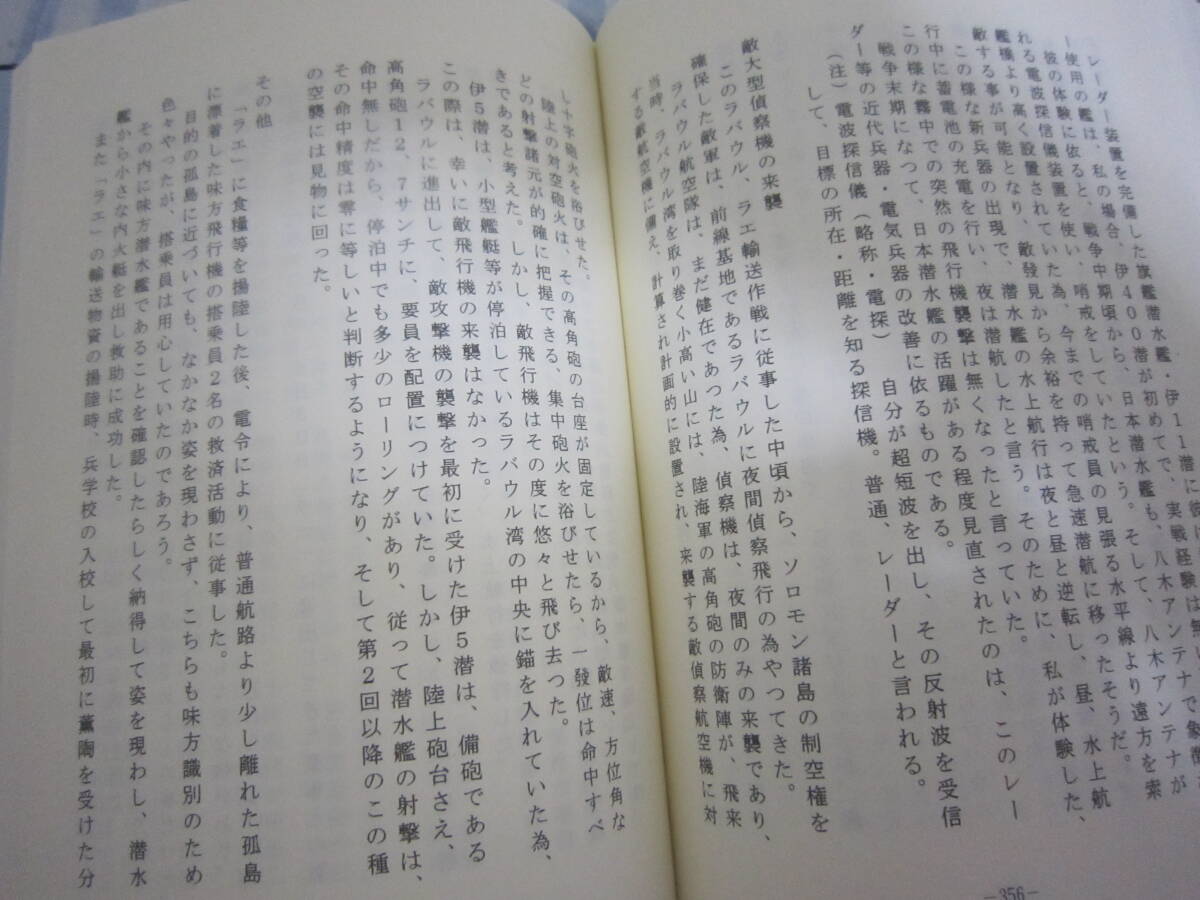 レーダー装置を完備した旗艦潜水艦・伊11潜に
ー使用の艦は、私の場合、伊400潜が初めてで、実戦経験は無
彼の体験に依ると、戦争中期頃から、日本潜水艦も、八木アンテナで象徴
れる電波探信儀装置を使い、哨戒をしていたという。そして、八木アンテナが
艦橋より高く設置されていた為、今までの哨戒員の見張る水平線より遠方を索
敵する事が可能となり、敵發見から余裕を持って急速潜航に移ったそうだ。
この様な新兵器の出現で、潜水艦の水上航行は夜と昼と逆転し、昼、水上航
行中に蓄電池の充電を行い、夜は潜航したと言う。そのために、私が体験した、
この様な霧中での突然の飛行機襲撃は無くなったと言っていた。
戦争末期になって、日本潜水艦の活躍がある程度見直されたのは、このレー
ダー等の近代兵器・電気兵器の改善に依るものである。
(注)電波探信儀(略称・電探) 自分が超短波を出し、その反射波を受信
して、目標の所在・距離を知る探信機。普通、レーダーと言われる。
敵大型偵察機の来襲
このラバウル、ラエ輸送作戦に従事した中頃から、ソロモン諸島の制空権を
確保した敵軍は、前線基地であるラバウルに夜間偵察飛行の為やってきた。
ラバウル航空隊は、まだ健在であった為、偵察機は、夜間のみの来襲であり、
当時、ラバウル湾を取り巻く小高い山には、陸海軍の高角砲の防衛陣が、飛来
する敵航空機に備え、計算され計画的に設置され、来襲する敵偵察航空機に対
―356―
し十字砲火を浴びせた。
陸上の対空砲火は、その高角砲の台座が固定しているから、敵速、方位角な
どの射撃諸元が的確に把握できる、集中砲火を浴びせたら、一發位は命中すべ
きであると考えた。しかし、敵飛行機はその度に悠々と飛び去った。
伊5潜は、小型艦艇等が停泊しているラバウル湾の中央に錨を入れていた為、
この際は、幸いに敵飛行機の来襲はなかった。
ラバウルに進出して、敵攻撃機の襲撃を最初に受けた伊5潜は、備砲である
高角砲12、7サンチに、要員を配置につけていた。しかし、陸上砲台さえ、
命中無しだから、停泊中でも多少のローリングがあり、従って潜水艦の射撃は、
その命中精度は零に等しいと判断するようになり、そして第2回以降のこの種
の空襲には見物に回った。
その他
「ラエ」に食糧等を揚陸した後、電令により、普通航路より少し離れた孤島
に漂着した味方飛行機の搭乗員2名の救済活動に従事した。
目的の孤島に近づいても、なかなか姿を現わさず、こちらも味方識別のため
色々やったが、搭乗員は用心していたのであろう。
その内に味方潜水艦であることを確認したらしく納得して姿を現わし、潜水
艦から小さな内火艇を出し救助に成功した。
また「ラエ」の輸送物資の揚陸時、兵学校の入校して最初に薫陶を受けた分